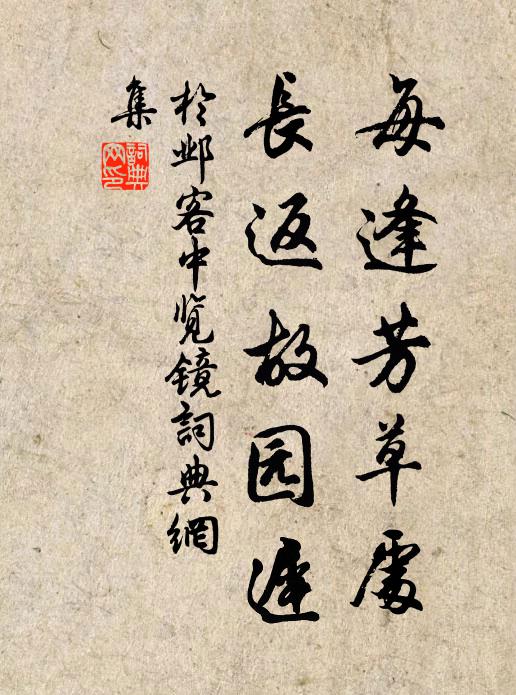 每逢芳草處
長返故园遲
於邺客中览镜詞典網
集
詞典
网印